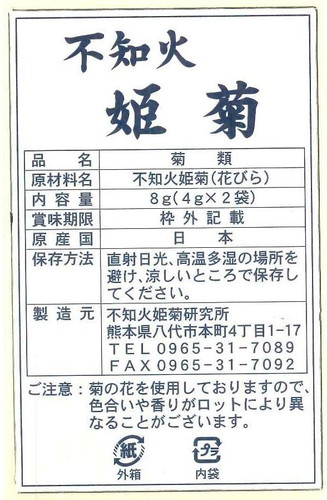 不知火
姫菊
品名 菊類
原材料名 不知火姫菊(花びら)
内容量 8g(4g×2袋)
賞味期限 枠外記載
原産国 日本
保存方法 直射日光、高温多湿の場所を
避け、涼しいところで保存し
てください。
製造元 不知火姫菊研究所
熊本県八代市本町4丁目1-17
TEL0965-31-7089
FAX0965-31-7092
ご注意：菊の花を使用しておりますので、
色合いや香りがロットにより異
なることがございます。
紙 プラ
外箱 内袋